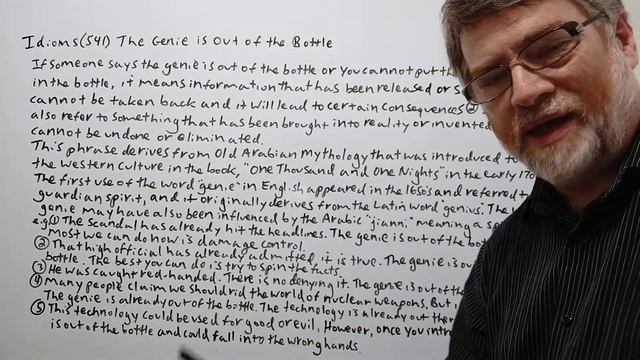 Idioms (541) The Genie is Out of the Bottle
If someone says the genie is out of the bottle or you cannot put th
in the bottle, it means information that has been released or s
cannot be taken back and it will lead to certain consequences ②
also refer to something that has been brought into reality or invented
cannot be undone or eliminated.
This phrase derives from Old Arabian Mythology that was introduced to
the Western culture in the book, "One Thousand and One Nights" in the early 170
The first use of the word "genie" in English appeared in the 1650's and referred to
guardian spirit, and it originally derives from the Latin word "genius." The
genie may have also been influenced by the Arabic "jianni" meaning a sp
e.g. ① The scandal has already hit the headlines. The genie is out of the bot
most we can do now is damage control.
② That high official has already admitted, it is true. The genie is out
bottle. The best you can do is try to spin the facts.
③ He was caught red-handed. There is no denying it. The genie is out of the
④ Many people claim we should rid the world of nuclear weapons. But
The genie is already out of the bottle. The technology is already out the
⑤ This technology could be used for good or evil, However, once you intr
is out of the bottle and could fall into the wrong hands.